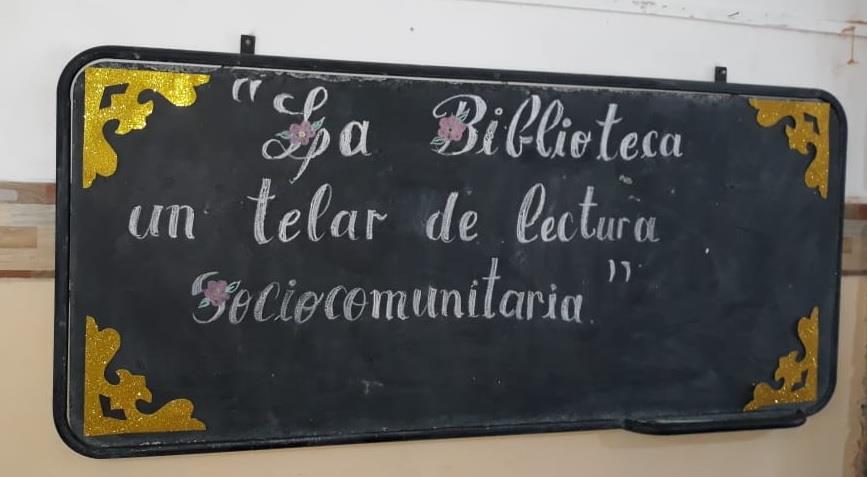 "La Biblioteca
un telar de lectura
Sociocomunitaria."